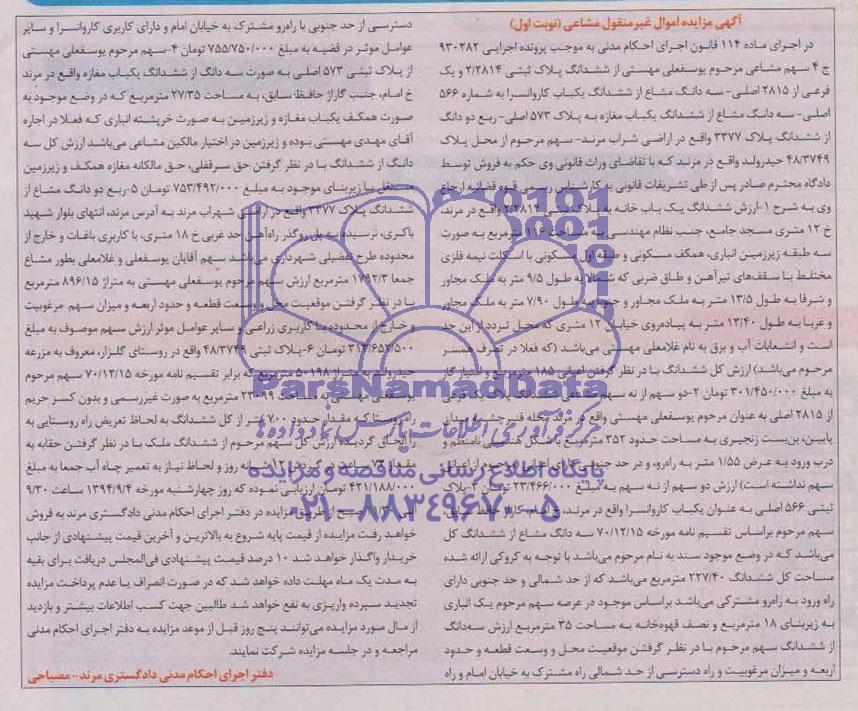 آگهی مزایده اموال غیرمنقول مشاعی (نوبت اول)
در اجرای ماده ۱۱۴ قانون اجرای احکام مدنی به موجب پرونده اجرایی ۹۳۰۲۸۲
ج ۴ سهم مشاعی مرحوم یوسفعلی مهستی از ششدانگ پلاک ثبتی ۲/۲۸۱۴ و یک
فرعی از ۲۸۱۵ اصلی- سه دانگ مشاع از ششدانگ یکباب کاروانسرا به شماره ۵۶۶
اصلی- سه دانگ مشاع از ششدانگ یکباب مغازه به پلاک ۵۷۳ اصلی- ربع دو دانگ
از ششدانگ پلاک ۳۳۷۷ واقع در اراضی شراب مرند- سهم مرحوم از محل پلاک
۴۸/۳۷۴۹ حیدرولد واقع در مرند که با تقاضای وراث قانونی وی حکم به فروش توسط
دادگاه محترم صادر پس از طی تشریفات قانونی به کارشناس رسمی قوه قضائیه ارجاع
وی به شرح ۱-ارزش ششدانگ یک باب خانه به پلاک ثبتی ۲/۲۸۱۴ واقع در مرند،
خ ۱۲ متری مسجد جامع، جنب نظام مهندسی به مساحت ۱۱۶ مترمربع به صورت
سه طبقه زیرزمین انباری، همکف مسکونی و طبقه اول مسکونی با اسکلت نیمه فلزی
مختلط با سقف‌های تیرآهن و طاق ضربی که شمالا به طول ۹/۵ متر به ملک مجاور
و شرقا به طول ۱۳/۵ متر به ملک مجاور و جنوبا به طول ۷/۹۰ متر به ملک مجاور
و غربا به طول ۱۳/۴۰ متر به پیاده‌روی خیابان ۱۲ متری که محل تردد از این حد
است و انشعابات آب و برق به نام غلامعلی مهستی می‌باشد (که فعلا در تصرف همسر
مرحوم می‌باشد) ارزش کل ششدانگ با در نظر گرفتن اعیانی ۱۸۵ مترمربع و امتیاز گاز
به مبلغ ۳۰۱/۴۵۰/۰۰۰ تومان ۲-دو سهم از نه سهم ششدانگ پلاک یک فرعی
از ۲۸۱۵ اصلی به عنوان مرحوم یوسفعلی مهستی واقع در مرند، میدان
پایین، بن‌بست زنجیری به مساحت حدود ۳۵۲ مترمربع به شکل هندسی نامنظم و
درب ورود به عرض ۱/۵۵ متر به راه‌رو، و در حد جنوبی
سهم نداشته است) ارزش دو سهم از نه سهم به مبلغ ۲۳/۴۶۶/۰۰۰ تومان ۳-پلاک
ثبتی ۵۶۶ اصلی به عنوان یکباب کاروانسرا واقع در مرند، خ امام، گاراژ حافظ سابق
سهم مرحوم براساس تقسیم نامه مورخه ۷۰/۱۲/۱۵ سه دانگ مشاع از ششدانگ کل
می‌باشد که در وضع موجود سند به نام مرحوم می‌باشد با توجه به کروکی ارائه شده
مساحت کل ششدانگ ۲۲۷/۴۰ مترمربع می‌باشد که از حد شمالی و حد جنوبی دارای
راه ورود به راه‌رو مشترکی می‌باشد براساس موجود در عرصه سهم مرحوم یک انباری
به زیربنای ۱۸ مترمربع و نصف قهوه‌خانه به مساحت ۳۵ مترمربع ارزش سه‌دانگ
از ششدانگ سهم مرحوم با در نظر گرفتن موقعیت محل و وسعت قطعه و حدود
اربعه و میزان مرغوبیت و راه دسترسی از حد شمالی راه مشترک به خیابان امام و راه
دسترسی از حد جنوبی با راه‌رو مشترک به خیابان امام و دارای کاربری کاروانسرا و سایر
عوامل موثر در قضیه به مبلغ ۷۵۵/۷۵۰/۰۰۰ تومان ۴-سهم مرحوم یوسفعلی مهستی
از پلاک ثبتی ۵۷۳ اصلی به صورت سه دانگ از ششدانگ یکباب مغازه واقع در مرند
خ امام، جنب گاراژ حافظ سابق، به مساحت ۲۷/۳۵ مترمربع که در وضع موجود به
صورت همکف یکباب مغازه و زیرزمین به صورت خرپشته انباری که فعلا در اجاره
آقای مهدی مهستی بوده و زیرزمین در اختیار مالکین مشاعی می‌باشد ارزش کل سه
دانگ از ششدانگ با در نظر گرفتن حق سرقفلی، حق مالکانه مغازه همکف و زیرزمین
مستقل با زیربنای موجود به مبلغ ۷۵۳/۴۹۲/۰۰۰ تومان ۵-ربع دو دانگ مشاع از
ششدانگ پلاک ۳۳۷۷ واقع در اراضی شهراب مرند به آدرس مرند، انتهای بلوار شهید
باکری، نرسیده به پل روگذر راه‌آهن حد غربی خ ۱۸ متری، با کاربری باغات و خارج از
محدوده طرح تفضیلی شهرداری می‌باشد سهم آقایان یوسفعلی و غلامعلی بطور مشاع
جمعا ۱۷۹۲/۳ مترمربع ارزش سهم مرحوم یوسفعلی مهستی به متراژ ۸۹۶/۱۵ مترمربع
با در نظر گرفتن موقعیت محل و وسعت قطعه و حدود اربعه و میزان سهم مرغوبیت
و خارج از محدوده با کاربری زراعی و سایر عوامل موثر ارزش سهم موصوف به مبلغ
۳۱۳/۶۵۲/۵۰۰ تومان ۶-پلاک ثبتی ۴۸/۳۷۴۹ واقع در روستای گلزار، معروف به مزرعه
حیدرولد به متراژ ۵۰۱۹۸ مترمربع که برابر تقسیم نامه مورخه ۷۰/۱۲/۱۵ سهم مرحوم
یوسفعلی مهستی به مساحت ۲۳۰۹۹ مترمربع به صورت غیررسمی و بدون کسر حریم
راه روستا که مقدار حدود ۷۰۰ متر از کل ششدانگ به لحاظ تعریض راه روستایی به
راه الحاق گردیده ارزش کل سهم مرحوم از ششدانگ ملک با در نظر گرفتن حقابه به
مقدار ساعت در گردش ۱۲ شبانه روز و لحاظ نیاز به تعمیر چاه آب جمعا به مبلغ
۴۲۱/۱۸۸/۰۰۰ تومان ارزیابی نموده که روز چهارشنبه مورخه ۱۳۹۴/۹/۴ ساعت ۹/۳۰
الی ۱۱/۳۰ صبح از طریق مزایده در دفتر اجرای احکام مدنی دادگستری مرند به فروش
خواهد رفت مزایده از قیمت پایه شروع به بالاترین و آخرین قیمت پیشنهادی از جانب
خریدار واگذار خواهد شد ۱۰ درصد قیمت پیشنهادی فی‌المجلس دریافت برای بقیه
به مدت یک ماه مهلت داده خواهد شد که در صورت انصراف یا عدم پرداخت مزایده
تجدید سپرده واریزی به نفع خواهد شد طالبین جهت کسب اطلاعات بیشتر و بازدید
از مال مورد مزایده می‌توانند پنج روز قبل از موعد مزایده به دفتر اجرای احکام مدنی
مراجعه و در جلسه مزایده شرکت نمایند.
دفتر اجرای احکام مدنی دادگستری مرند - مصباحی
ParsNamadData
مرکز فرآوری اطلاعات پارس نماد داده‌ها
پایگاه اطلاع رسانی مناقصه و مزایده
۰۲۱-۸۸۳۴۹۶۷۰-۵